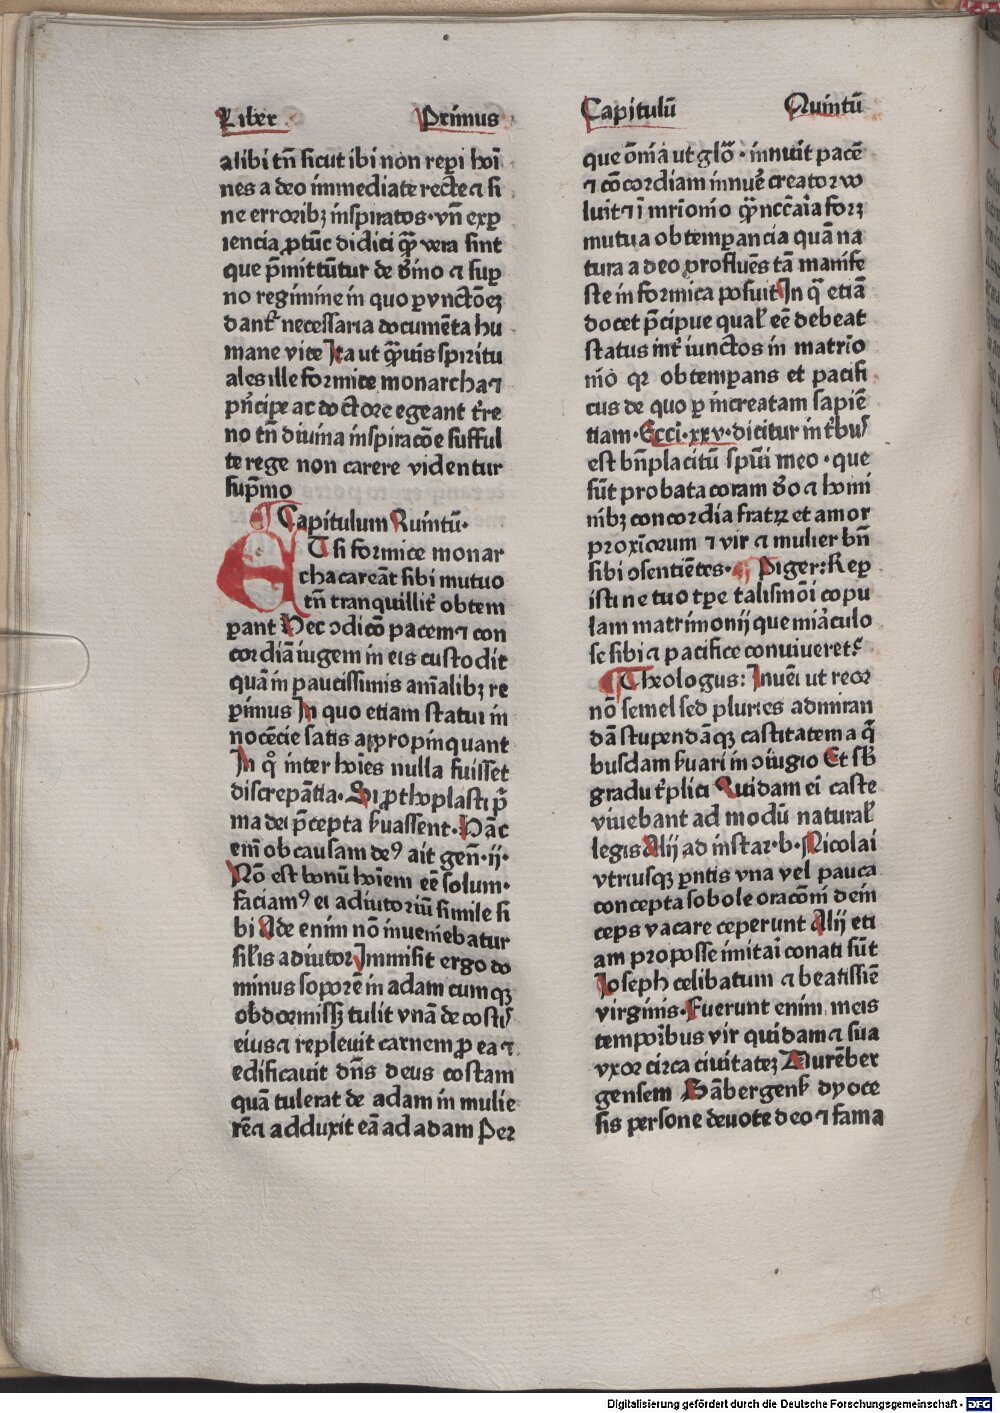 Liber Primus
alibi tñ sicut ibi non reperi hoı̄
nes a deo immediate recte ⁊ si
ne erroribꝫ inspiratos · vñ exꝑ
iencia ꝓtūc didici ꝙ̄ vera sint
que p̄mittūtur de d̄ĩno ⁊ suꝑ
no regimine in quo ꝑ vnctōeꝫ
dant᷑ necessaria documēta hu
mane vite Ita ut ꝙ̄uis spiritu
ales ille formice monarcha ⁊
pñcipe ac doctore egeant t̕re
no tñ diuina inspiracōe sufful
te rege non carere videntur
sup̄mo
Capitulum Quintū·
ET si formice monar
cha careāt sibi mutuo
tñ tranquillit̕ obtem
ꝑant Nec odicō pacem ⁊ con
cordiā iugem in eis custodit
quā in paucissimis aı̄alibꝫ re
ꝑimus In quo etiam statui in
nocēcie satis appropinquant
In qͦ inter hoı̄es nulla fuisset
discrepātia· Si ꝓthoplasti p̄
ma dei p̄cepta s̕uassent· Hāc
em̄ ob causam deꝰ ait gen̄·ij·
Nō est bonū hoı̄em eē solum·
faciamꝰ ei adiutoriū simile si
bi Ade enim nō inueniebatur
sil̕is adiutor Immisit ergo do
minus soporē in adam cumqꝫ
obdormissꝫ tulit vnā de costis
eius ⁊ repleuit carnem ꝓ ea ⁊
edificauit dñs deus costam
quā tulerat de adam in mulie
rē ⁊ adduxit eā ad adam Per
Capitulū Quintū
que om̄ia ut glō · innuit pacē
⁊ cōcordiam innuē creator vo
luit ⁊ ī mr̄ionio ꝙ̄ nccāı̄a forꝫ
mutua obtemꝑancia quā na
tura a deo profluēs tā manife
ste in formica posuit In q̄ etiā
docet p̄cipue qual̕ eē debeat
status int̕ iunctos in matrīo
nı̄o qꝛ obtemꝑans et pacifi
cus de quo ꝑ increatam sapiē
tiam · Ecci·xxv· dicitur in t̕bus
est bñplacitū spūi meo · que
sūt probata coram d̄o ⁊ homi
nibꝫ concordia fratꝝ et amor
proxīorum ⁊ vir ⁊ mulier bñ
sibi ɔsentiētes· Piger: Reꝑ
isti ne tuo tꝑe talismōi copu
lam matrimonij que mīaculo
se sibi ⁊ pacifice conuiueret᷑
Theologus: Inuēi ut reor
nō semel sed pluries admiran
dā stupendāqꝫ castitatem a q̄
busdam s̕uari in ɔiūgio Et sb̄
gradu t̕plici Quidam eı̄ caste
viuebant ad modū natural̕
legis Alij ad instar·b·Nicolai
vtriusqꝫ ꝑntis vna vel pauca
concepta sobole oracōnı̄ dein
ceps vacare ceperunt Alij eti
am pro posse imitaı̄ conati sūt
Ioseph celibatum ⁊ beatissie̅
virginis· Fuerunt enim meis
temꝑoı̄bus vir quidam ⁊ sua
vxor circa ciuitateꝫ Nurēber
gensem Bābergens̕ dyoce
sis persone deuote deo ⁊ fama
Digitalisierung gefördert durch die Deutsche Forschungsgemeinschaft - DFG